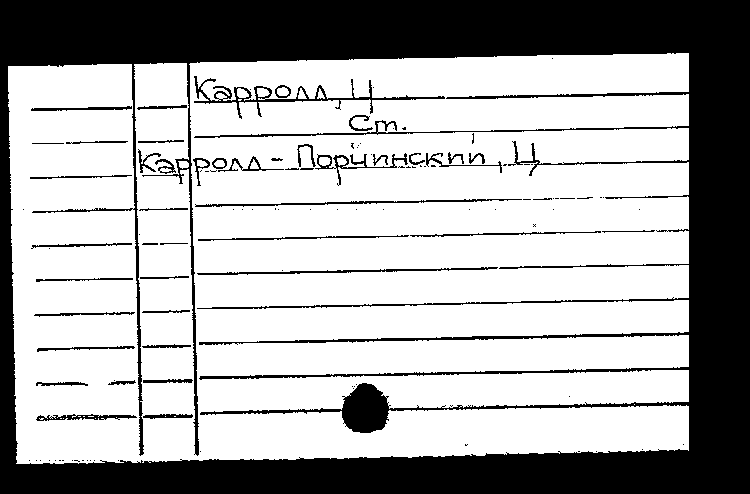 Карролл, Ц
Ст.
Карролл - Порчинский, Ц